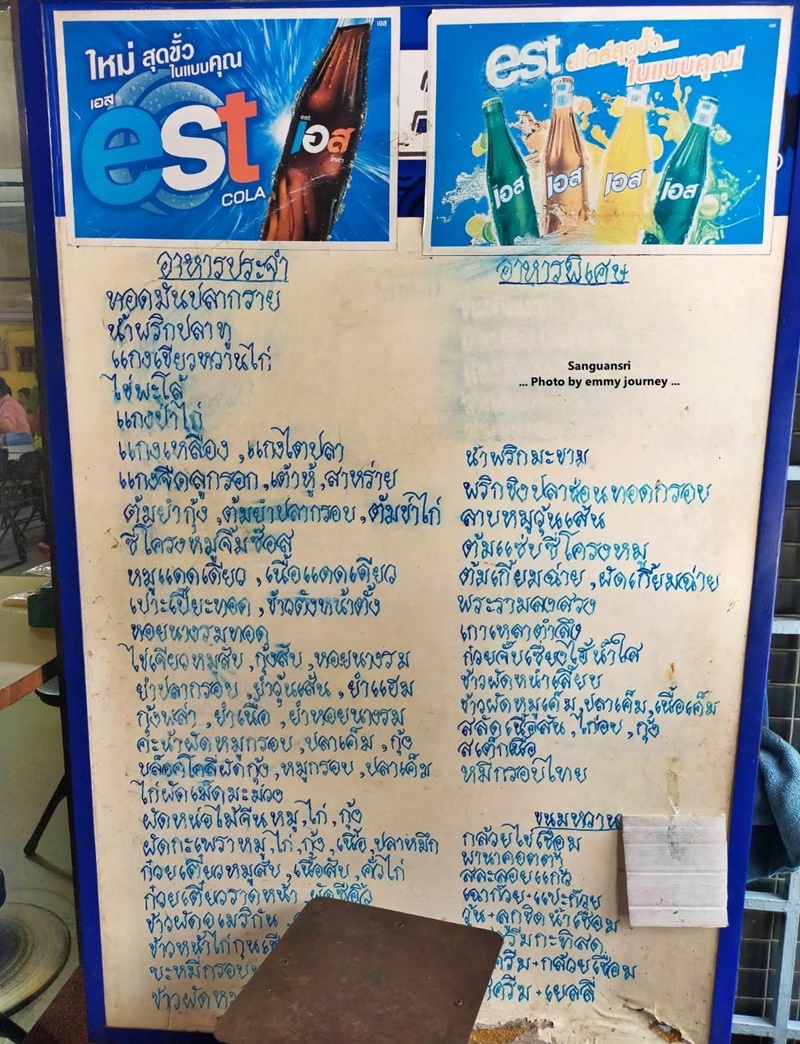 ใหม่ สุดขั้ว
ในแบบคุณ
เอส
est
COLA
est
เอส
โคล่า
เอส
est สไตล์สุดขั้ว....
ในแบบคุณ!
เอส
เอส
เอส
เอส
เอส
อาหารประจำ
ทอดมันปลากราย
น้ำพริกปลาทู
แกงเขียวหวานไก่
ไข่พะโล้
แกงป่าไก่
แกงเหลือง , แกงไตปลา
แกงจืดลูกรอก , เต้าหู้ , สาหร่าย
ต้มยำกุ้ง , ต้มยำปลากรอบ , ต้มข่าไก่
ซี่โครงหมูจิ้มซ๊อส
หมูแดดเดียว , เนื้อแดดเดียว
เปาะเปี๊ยะทอด , ข้าวตังหน้าตั้ง
หอยนางรมทอด
ไข่เจียวหมูสับ , กุ้งสับ , หอยนางรม
ยำปลากรอบ , ยำวุ้นเส้น , ยำแฮม
กุ้งพล่า , ยำเนื้อ , ยำหอยนางรม
คะน้าผัดหมูกรอบ , ปลาเค็ม , กุ้ง
บล็อคโคลี่ผัดกุ้ง , หมูกรอบ , ปลาเค็ม
ไก่ผัดเม็ดมะม่วง
ผัดหน่อไม้จีนหมู , ไก่ , กุ้ง
ผัดกะเพราหมู , ไก่ , กุ้ง , เนื้อ , ปลาหมึก
ก๋วยเตี๋ยวหมูสับ , เนื้อสับ , คั่วไก่
ก๋วยเตี๋ยวราดหน้า , ผัดซีอิ๊ว
ข้าวผัดอเมริกัน ,
ข้าวหน้าไก่กุนเชี
บะหมี่กรอบ
ข้าวผัดหมู
อาหารพิเศษ
Sanguansri
... Photo by emmy journey ...
น้ำพริกมะขาม
พริกขิงปลาช่อนทอดกรอบ
ลาบหมูวุ้นเส้น
ต้มแซ่บซี่โครงหมู
ต้มเกี้ยมฉ่าย , ผัดเกี้ยมฉ่าย
พระรามลงสรง
เกาเหลาตำลึง
ก๋วยจั๊บเซี่ยงไฮ้น้ำใส
ข้าวผัดหน้าเลี้ยบ
ข้าวผัดหมูเค็ม , ปลาเค็ม , เนื้อเค็ม
สลัดเนื้อสัน , ไก่อบ , กุ้ง
สเต็กเนื้อ
หมี่กรอบไทย
ขนมหวาน
กล้วยไข่เชื่อม
พานาคอตต้า
สละลอยแก้ว
เฉาก๊วย+แปะก๊วย
วุ้น+ลูกชิดน้ำเชื่อม
กะทิสด
ครีม+กล้วยเชื่อม
ครีม+เยลลี่